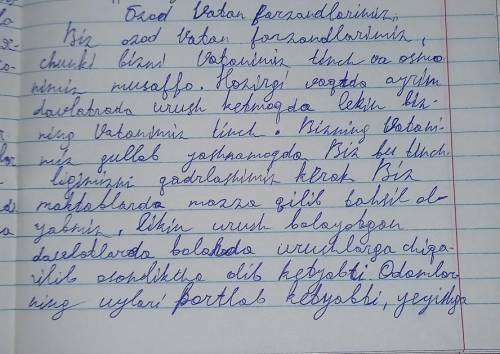 Ozod Vatan farzandlarimiz,
Biz ozod Vatan farzandlarimiz,
chunki bizni Vatanimiz tinch va osmo
nimiz musaffo. Hozirgi vaqtda ayrim
davlatrada urush ketmoqda lekin biz-
ning Vatanimiz tinch. Bizning Vatani-
miz gullab yashnamoqda Biz bu tinch
ligimizni qadrlashimiz kerak Biz
maktablarda mazza qilib tahsil ol-
yabmiz, likin urush bolayotgan
davlatlarda bolalada urushlarga chiqa-
rilib osondikcha olib ketyabti Odamlar
ning uylari portlab ketyabti, yeyishga